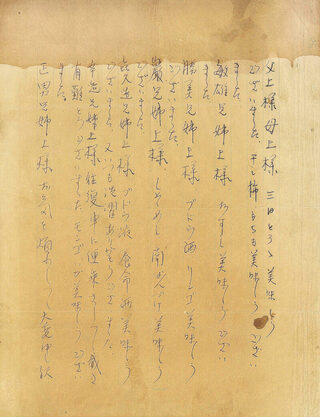 父上様 母上様 三日とろゝ美味しう
ございました。干し柿 もちも美味しう
ございました。
敏雄兄 姉上様 おすし美味しうござい
ました。
勝美兄 姉上様 ブドウ酒 リンゴ美味しう
ございました。
巌兄 姉上様 しそめし 南ばんづけ美味しう
ございました。
喜久造兄 姉上様 ブドウ液 養命酒 美味しう
ございました。又いつも洗濯ありがとうございました。
幸造兄 姉上様 往復車に便乗さして戴き
有難とうございました。モンゴいか美味しうござい
ました。
正男兄 姉上様 お気を煩わして大変申し訳